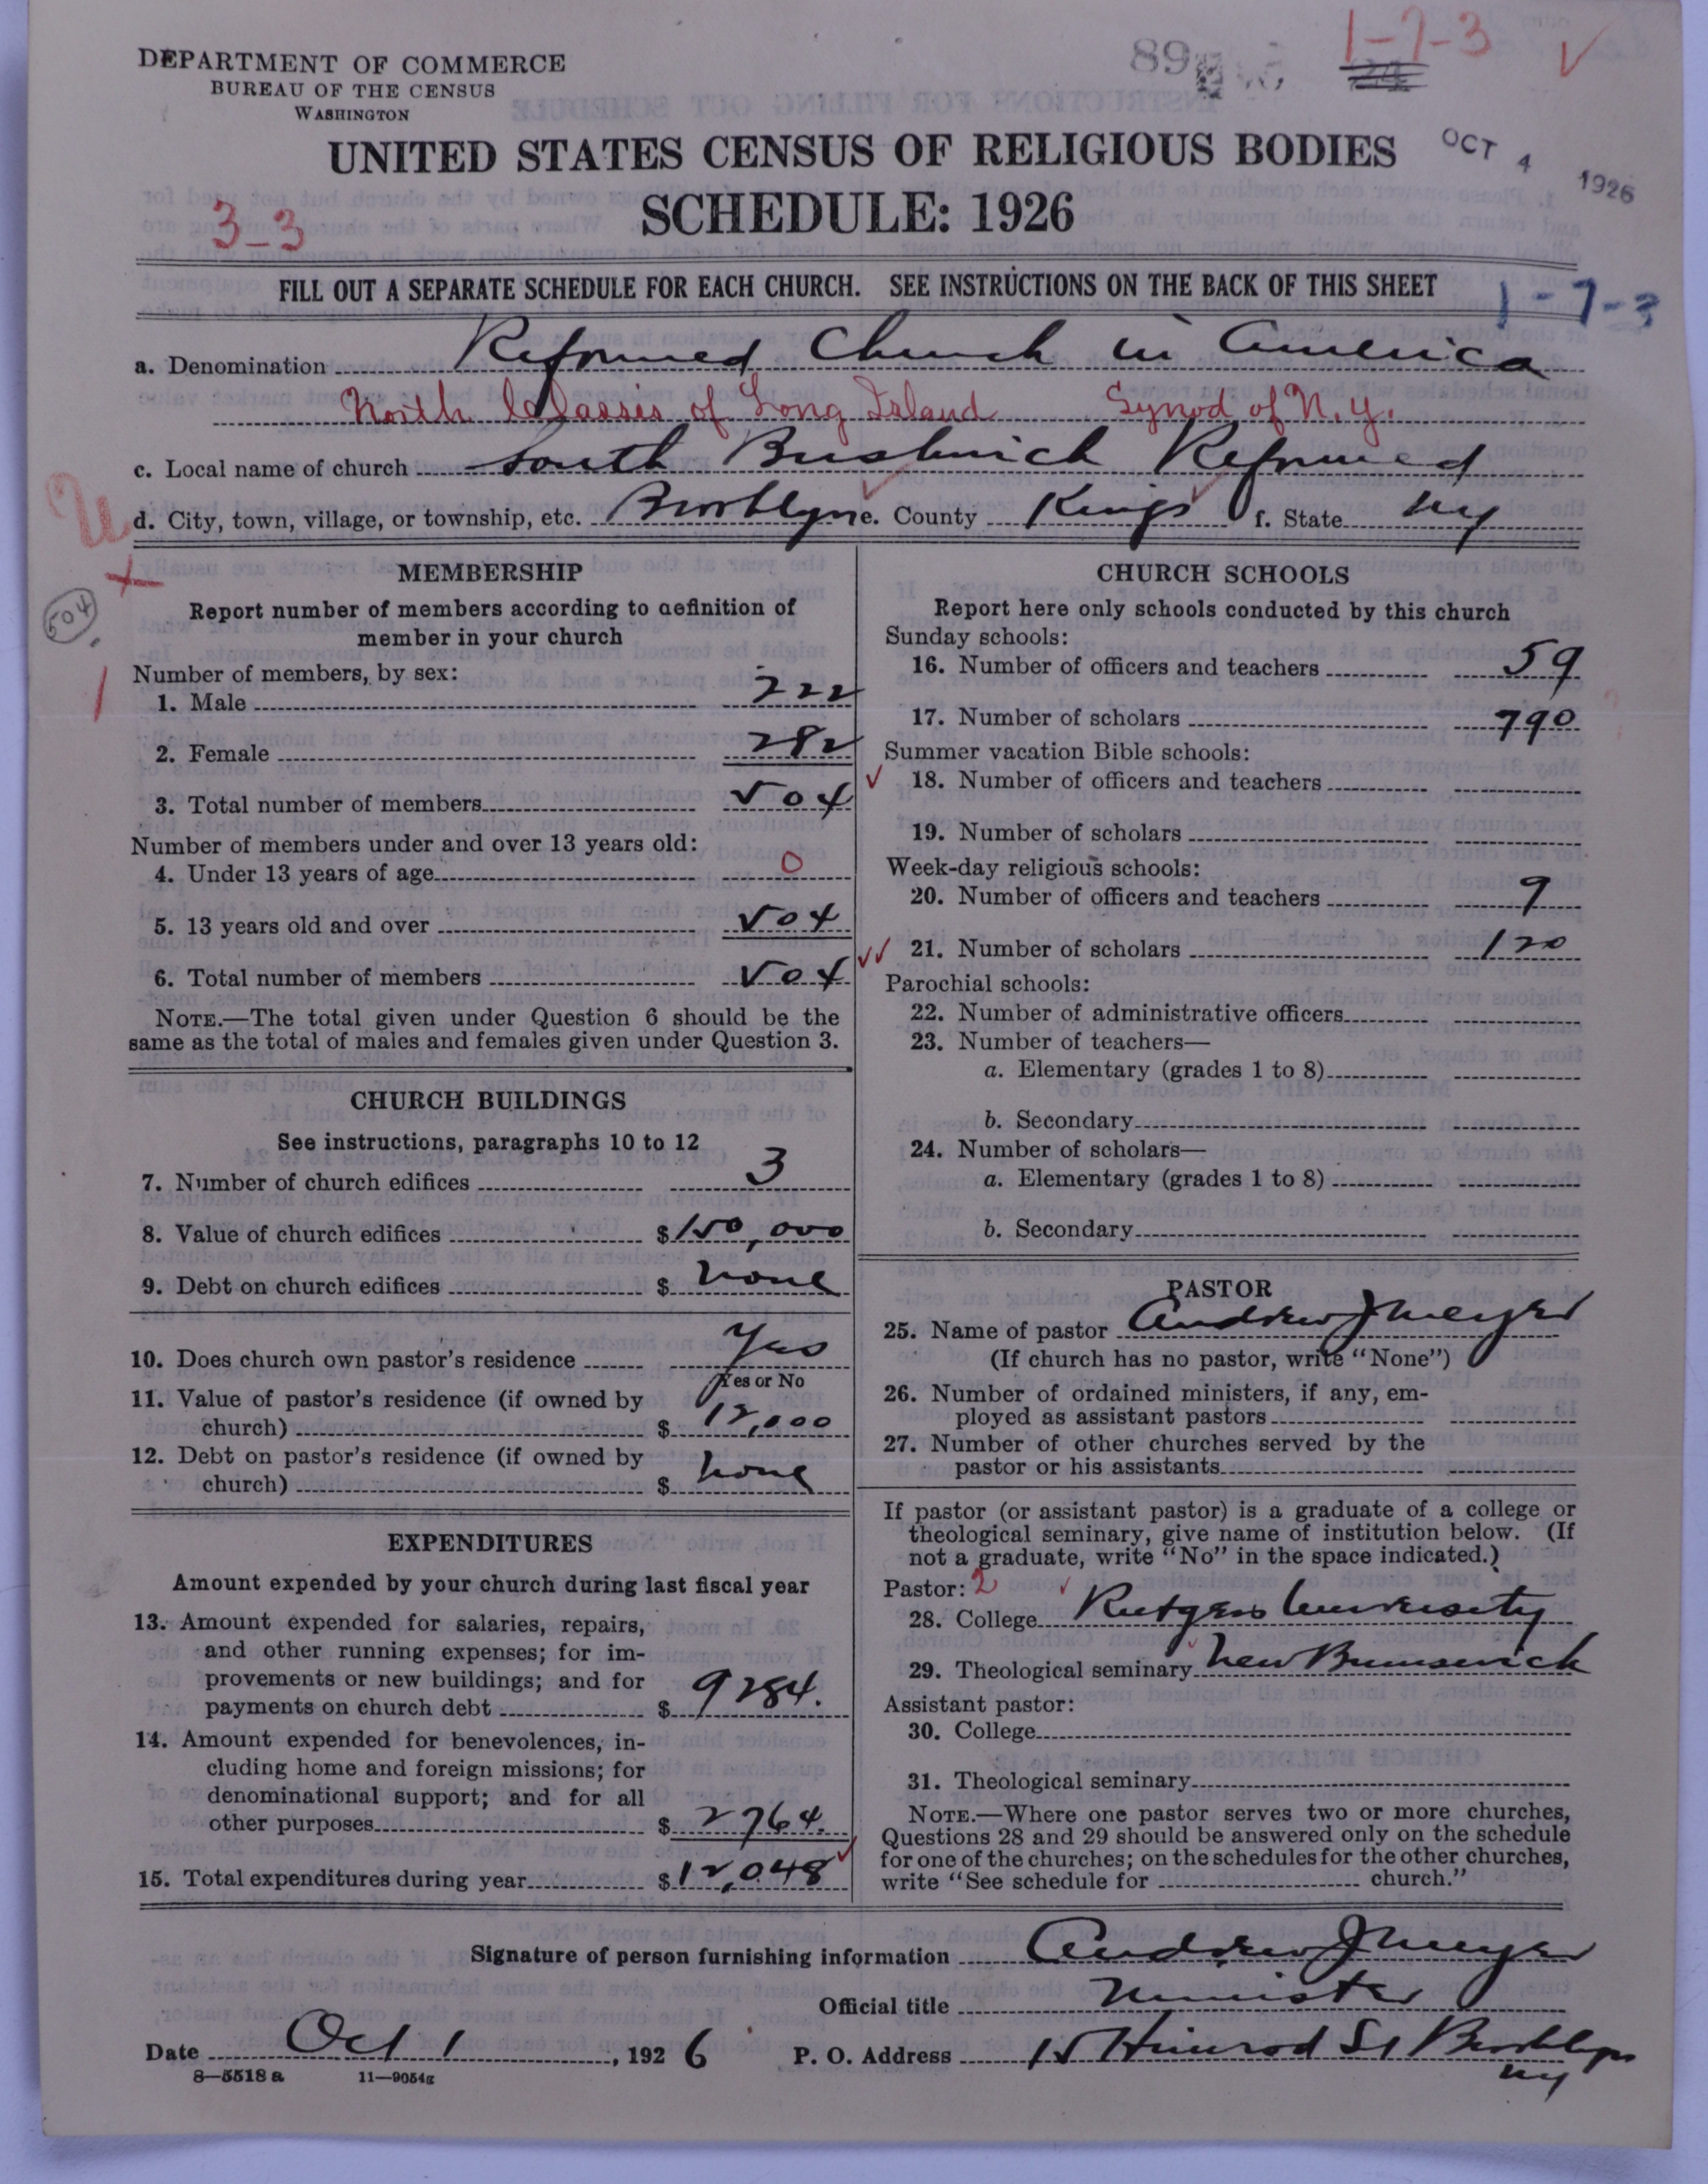 DEPARTMENT OF COMMERCE
BUREAU OF THE CENSUS
WASHINGTON
89
1-7-3
24
UNITED STATES CENSUS OF RELIGIOUS BODIES
OCT 4 1926
SCHEDULE: 1926
3-3
FILL OUT A SEPARATE SCHEDULE FOR EACH CHURCH. SEE INSTRUCTIONS ON THE BACK OF THIS SHEET
1-7-3
a. Denomination Reformed Church in America
North Classis of Long Island Synod of N.Y.
c. Local name of church South Bushwick Reformed
d. City, town, village, or township, etc. Brooklyn e. County Kings f. State NY
U
504
MEMBERSHIP
Report number of members according to definition of
member in your church
Number of members, by sex:
1. Male 222
2. Female 282
3. Total number of members 504
Number of members under and over 13 years old:
4. Under 13 years of age 0
5. 13 years old and over 504
6. Total number of members 504
NOTE.—The total given under Question 6 should be the
same as the total of males and females given under Question 3.
CHURCH BUILDINGS
See instructions, paragraphs 10 to 12
7. Number of church edifices 3
8. Value of church edifices $150,000
9. Debt on church edifices $ none
10. Does church own pastor's residence Yes
Yes or No
11. Value of pastor's residence (if owned by
church) $ 12,000
12. Debt on pastor's residence (if owned by
church) $ none
EXPENDITURES
Amount expended by your church during last fiscal year
13. Amount expended for salaries, repairs,
and other running expenses; for im-
provements or new buildings; and for
payments on church debt $ 9284.
14. Amount expended for benevolences, in-
cluding home and foreign missions; for
denominational support; and for all
other purposes $ 2764.
15. Total expenditures during year $12,048
CHURCH SCHOOLS
Report here only schools conducted by this church
Sunday schools:
16. Number of officers and teachers 59
17. Number of scholars 790
Summer vacation Bible schools:
18. Number of officers and teachers
19. Number of scholars
Week-day religious schools:
20. Number of officers and teachers 9
21. Number of scholars 120
Parochial schools:
22. Number of administrative officers
23. Number of teachers—
a. Elementary (grades 1 to 8)
b. Secondary
24. Number of scholars—
a. Elementary (grades 1 to 8)
b. Secondary
PASTOR
25. Name of pastor Andrew J Meyer
(If church has no pastor, write "None")
26. Number of ordained ministers, if any, em-
ployed as assistant pastors
27. Number of other churches served by the
pastor or his assistants
If pastor (or assistant pastor) is a graduate of a college or
theological seminary, give name of institution below. (If
not a graduate, write "No" in the space indicated.)
Pastor: 2
28. College Rutgers University
29. Theological seminary New Brunswick
Assistant pastor:
30. College
31. Theological seminary
NOTE.—Where one pastor serves two or more churches,
Questions 28 and 29 should be answered only on the schedule
for one of the churches; on the schedules for the other churches,
write "See schedule for church."
Signature of person furnishing information Andrew J Meyer
Official title Minister
Date Oct 1, 1926 P. O. Address 15 Himrod St Brooklyn
NY
8—5518 a 11—9054g